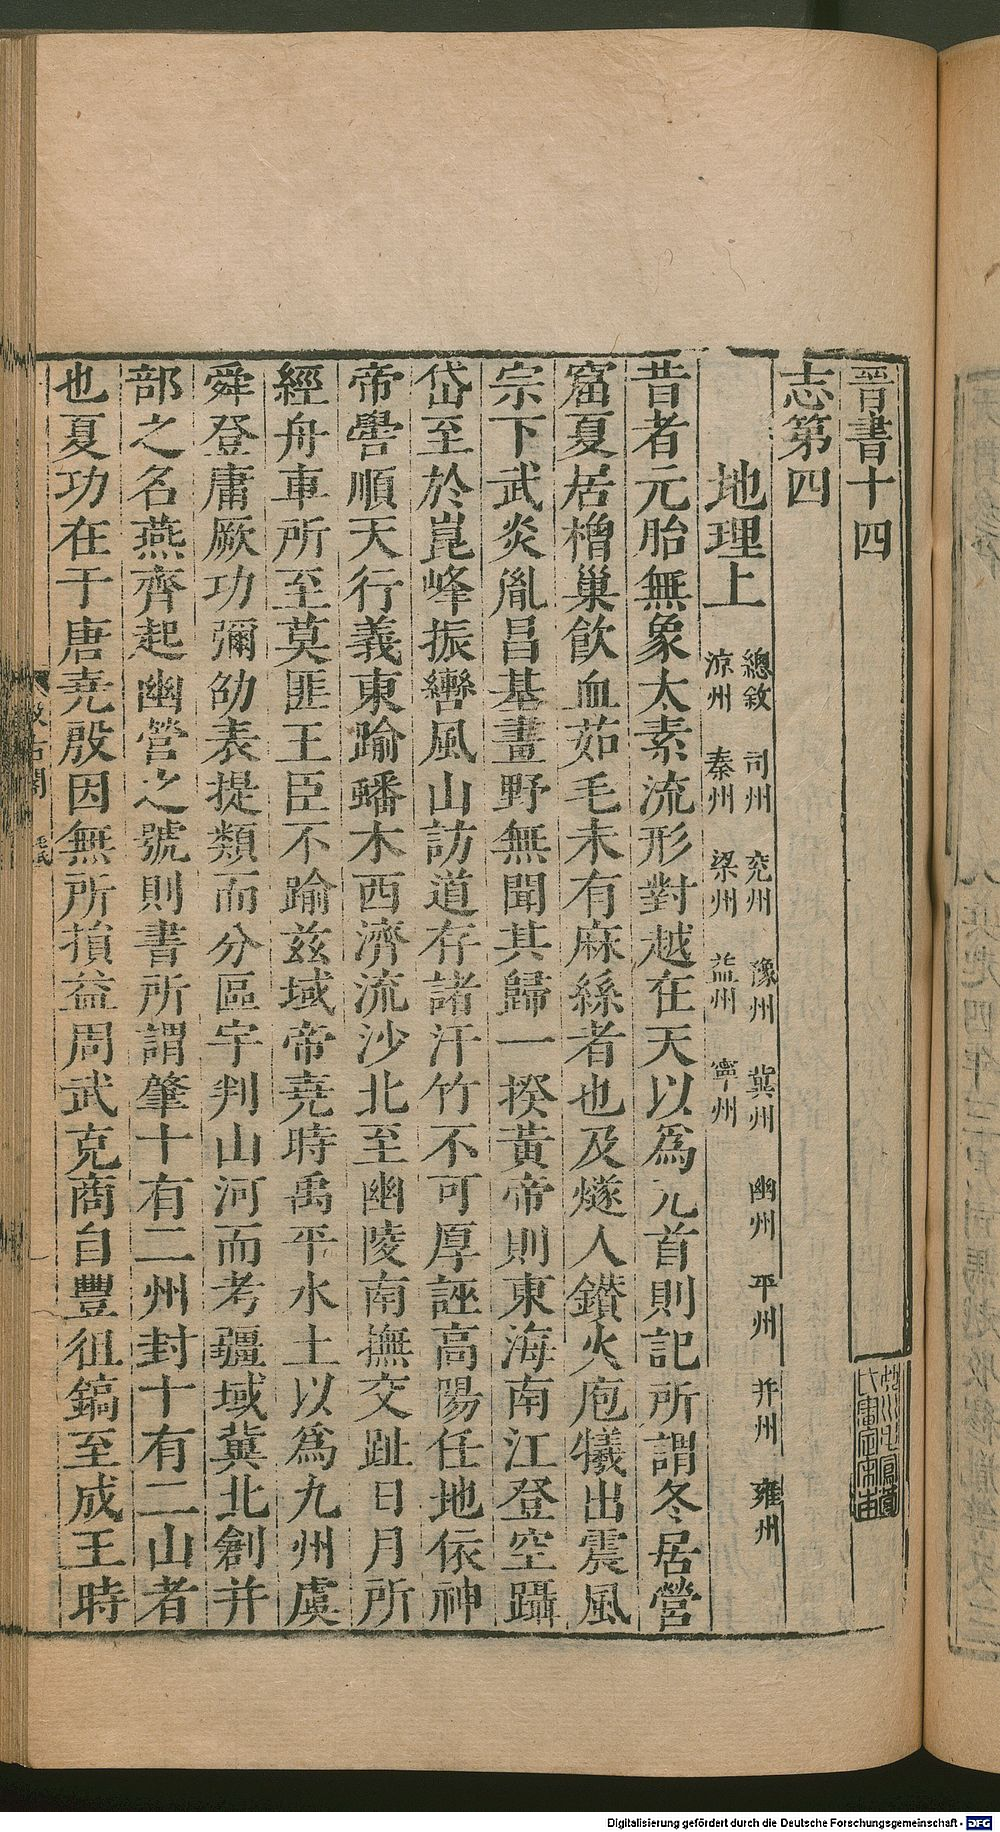 晉書十四
志第四
地理上
總敘 司州 兖州 豫州 冀州 幽州 平州 并州 雍州
涼州 秦州 梁州 益州 寧州
昔者元胎無象太素流形對越在天以爲元首則記所謂冬居營
窟夏居橧巢飲血茹毛未有麻絲者也及燧人鑚火庖犧出震風
宗下武炎胤昌基畫野無聞其歸一揆黃帝則東海南江登空躡
岱至於崑峰振轡風山訪道存諸汗竹不可厚誣高陽任地依神
帝嚳順天行義東踰蟠木西濟流沙北至幽陵南撫交趾日月所
經舟車所至莫匪王臣不踰兹域帝堯時禹平水土以爲九州虞
舜登庸厥功彌劭表提類而分區宇判山河而考疆域冀北創并
部之名燕齊起幽營之號則書所謂肇十有二州封十有二山者
也夏功在于唐堯殷因無所損益周武克商自豐徂鎬至成王時
Digitalisierung gefördert durch die Deutsche Forschungsgemeinschaft - DFG